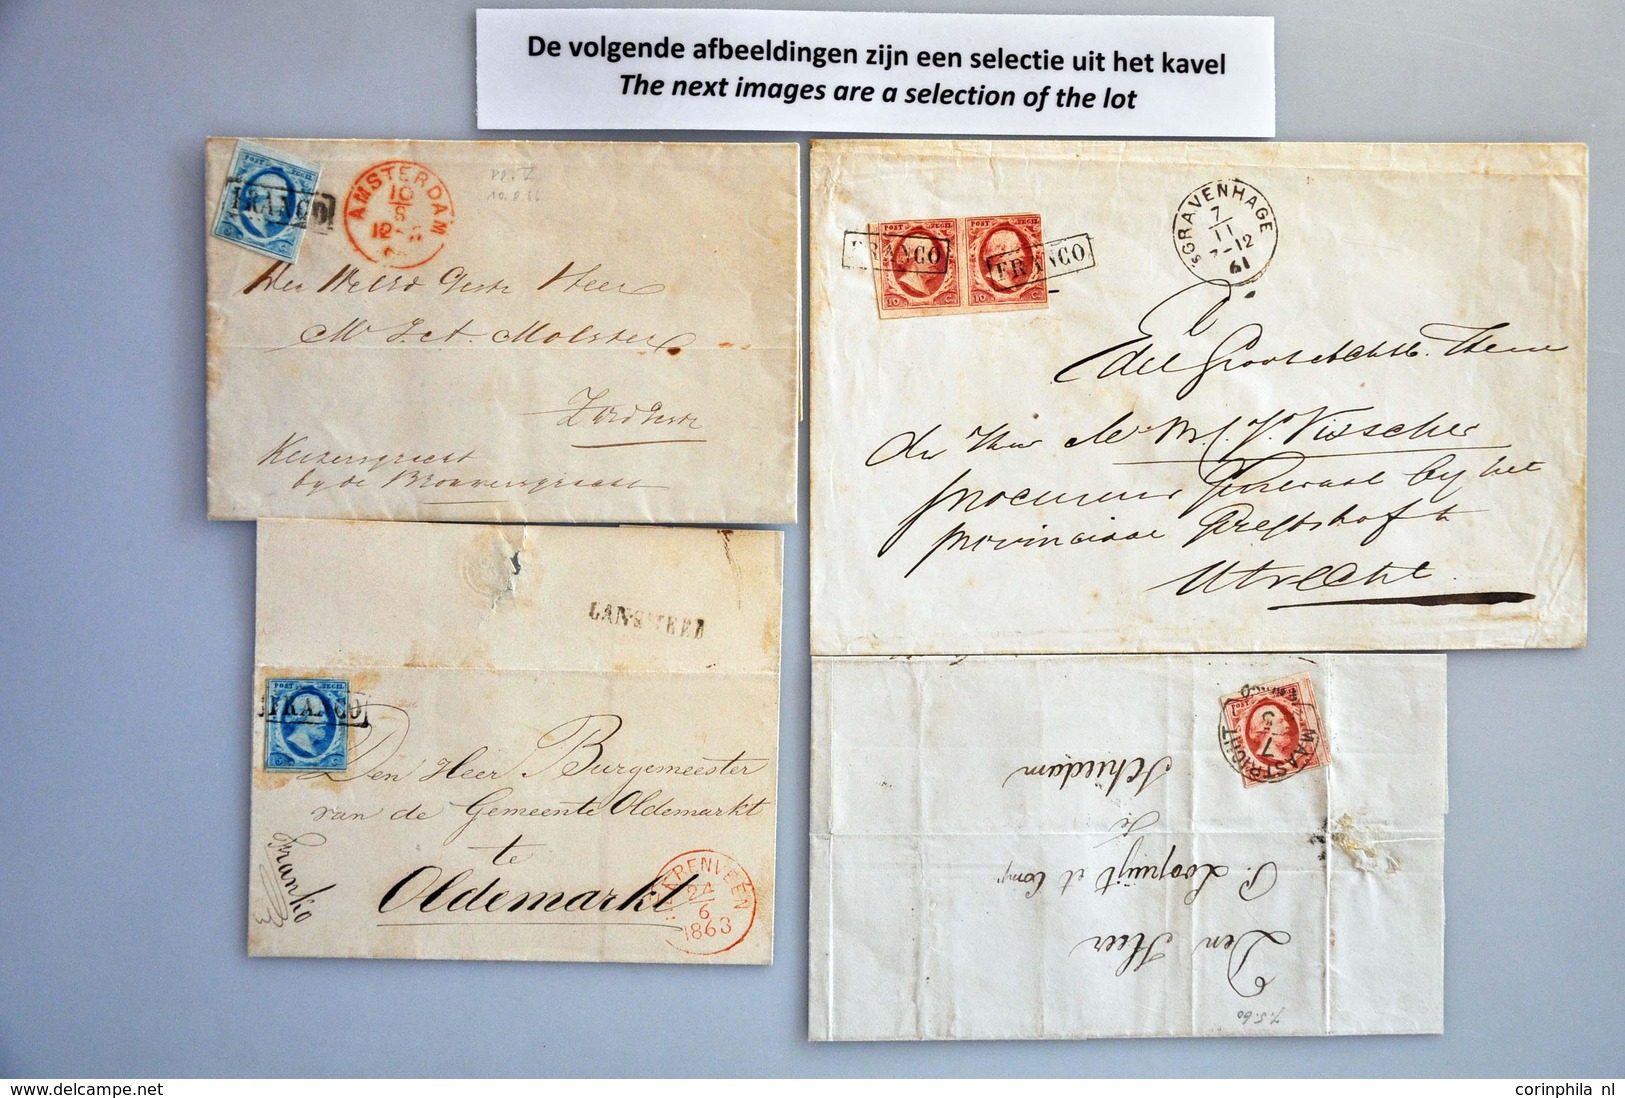 De volgende afbeeldingen zijn een selectie uit het kavel
The next images are a selection of the lot
POST ZEGEL
FRANCO
AMSTERDAM
10
8
12-
PP. V
10.8.
Heer
Molster
Keizersgracht
by de Brouwersgracht
POST ZEGEL POST ZEGEL
FRANCO FRANCO
10 C. 10 C.
'sGRAVENHAGE
7
11
7-12
61
Edel Grootachtb. Heer
den Heer Visscher
procureur Generaal by het
provinciaal Geregtshof te
Utrecht
LANGWEER
POST ZEGEL
FRANCO
5 C.
Den Heer Burgemeester
van de Gemeente Oldemarkt
te
Oldemarkt
Franko
HEERENVEEN
24
6
1863
POST
MAASTRICHT
7
5
Den Heer
P. Loopuijt et Comp
te
Schiedam
7.5.60
www.delcampe.net
corinphila nl